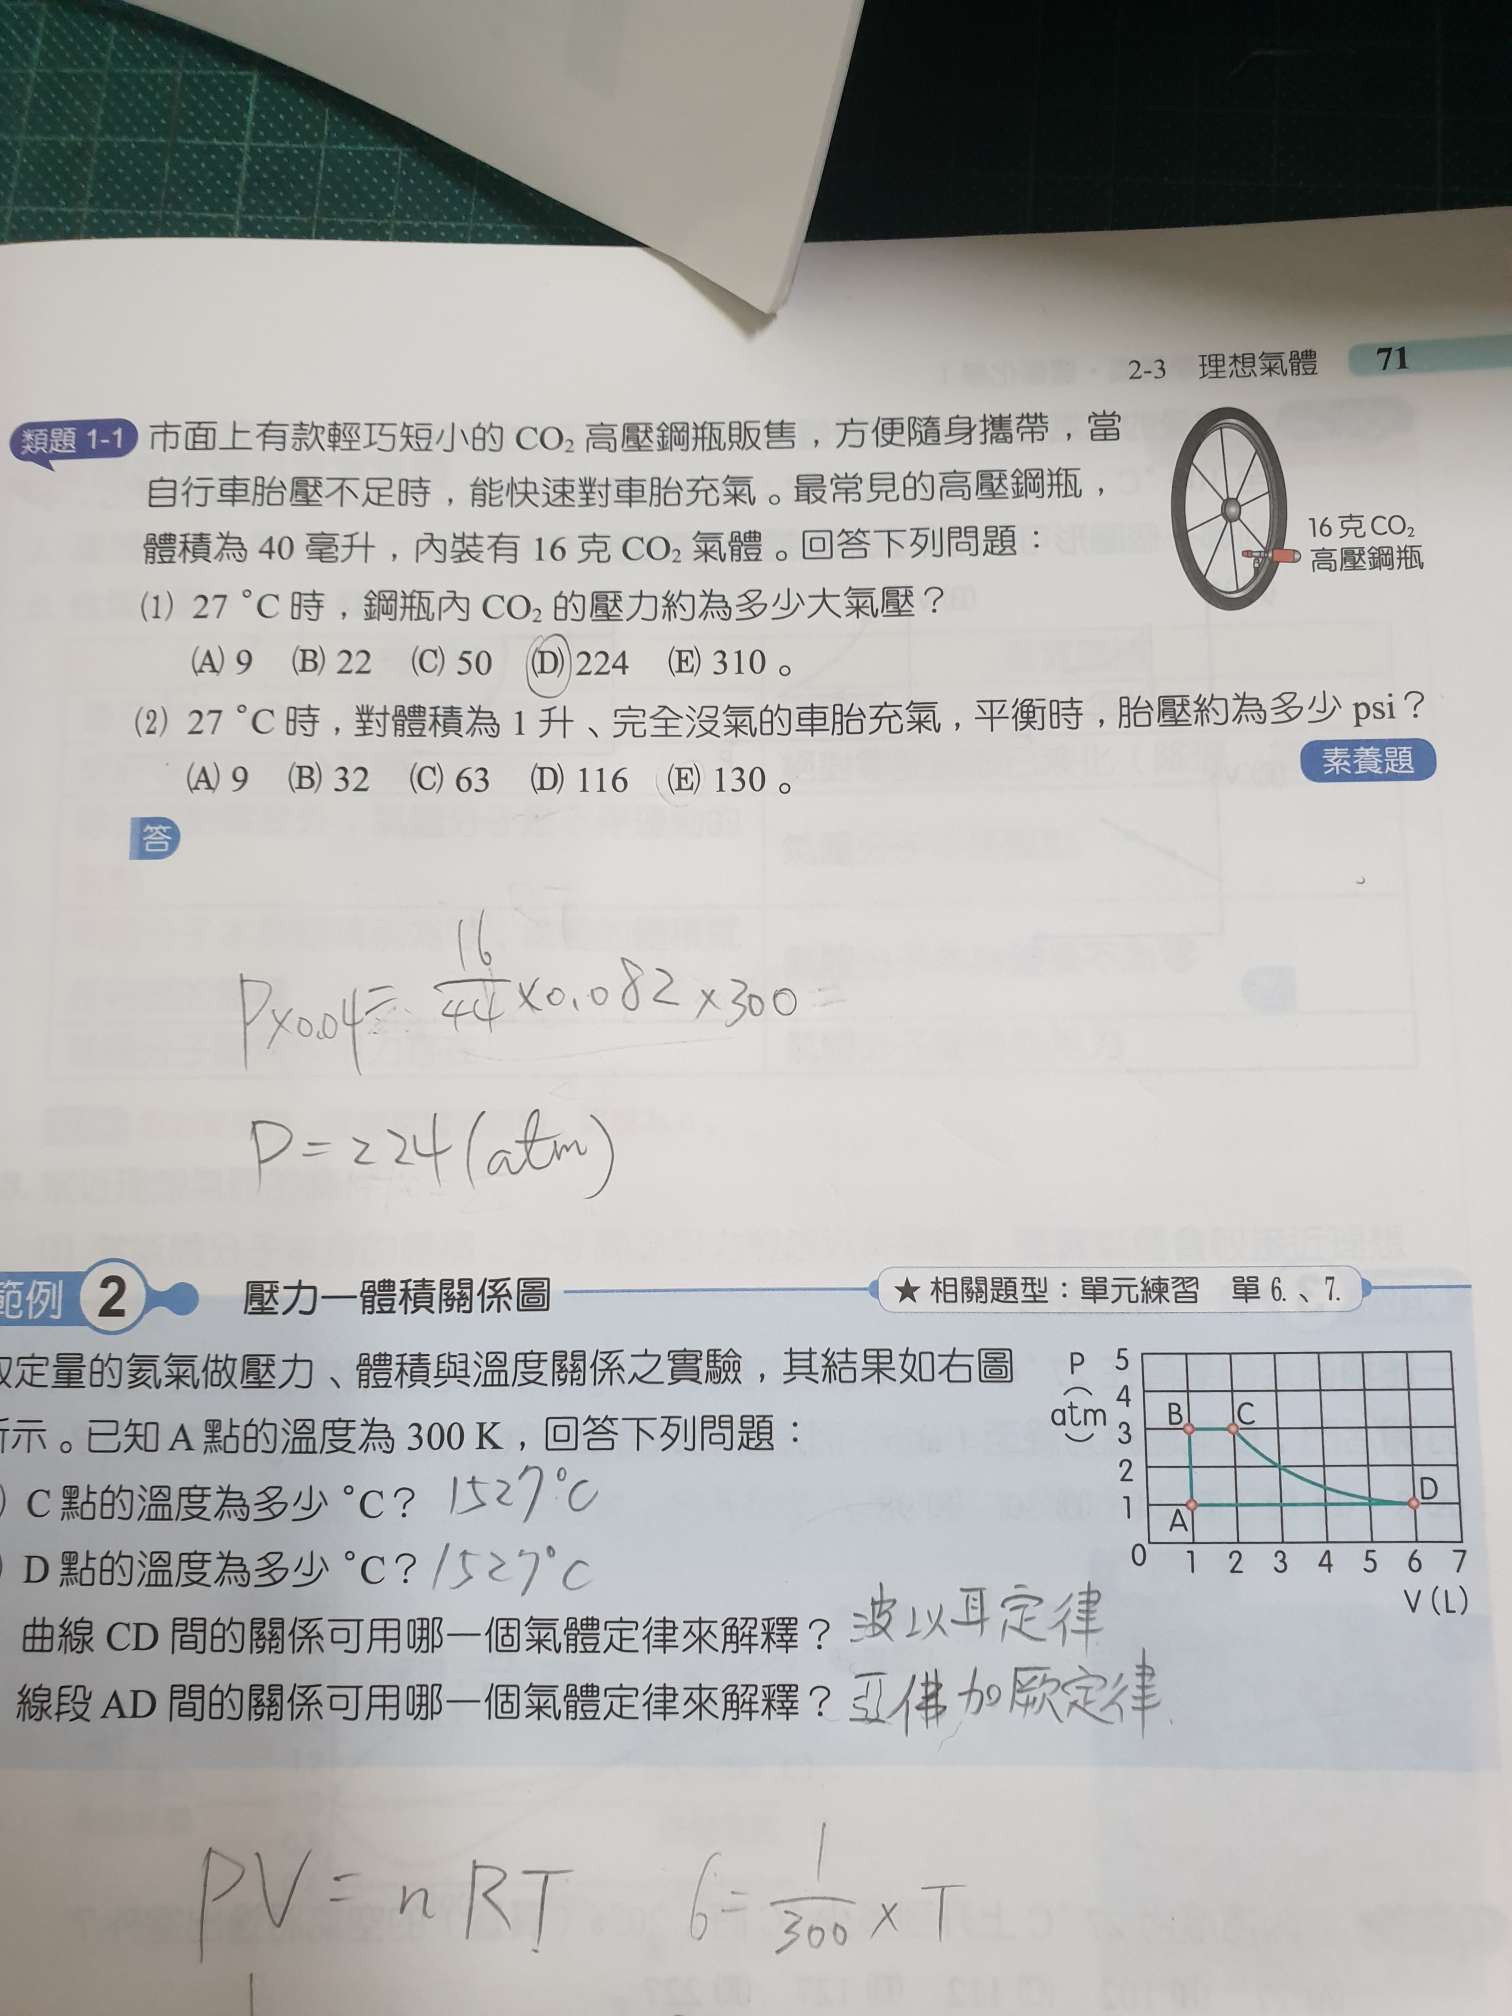 2-3 理想氣體 71
類題 1-1 市面上有款輕巧短小的 CO₂ 高壓鋼瓶販售，方便隨身攜帶，當
自行車胎壓不足時，能快速對車胎充氣。最常見的高壓鋼瓶，
體積為 40 毫升，內裝有 16 克 CO₂ 氣體。回答下列問題：
16 克 CO₂
高壓鋼瓶
(1) 27 °C 時，鋼瓶內 CO₂ 的壓力約為多少大氣壓？
(A) 9 (B) 22 (C) 50 (D) 224 (E) 310。
(2) 27 °C 時，對體積為 1 升、完全沒氣的車胎充氣，平衡時，胎壓約為多少 psi？
(A) 9 (B) 32 (C) 63 (D) 116 (E) 130。
素養題
答
P×0.04= 16/44 ×0.082 ×300 =
P=224(atm)
範例 2 壓力—體積關係圖 ★相關題型：單元練習 單 6.、7.
定量的氦氣做壓力、體積與溫度關係之實驗，其結果如右圖
示。已知 A 點的溫度為 300 K，回答下列問題：
) C 點的溫度為多少 °C？ 1527°C
) D 點的溫度為多少 °C？ 1527°C
曲線 CD 間的關係可用哪一個氣體定律來解釋？ 波以耳定律
線段 AD 間的關係可用哪一個氣體定律來解釋？ 亞佛加厥定律
P
(atm)
5
4
3
2
1
0 1 2 3 4 5 6 7
V (L)
B C
A D
PV=nRT 6= 1/300 × T